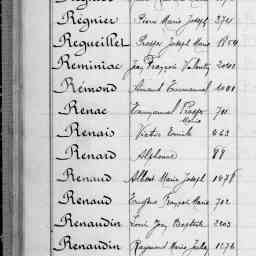 Régnier Pierre Marie Joseph 3721
Regueillet Prosper Joseph Marie
Reminiac Jean François Valentin
Rémond Armand Emmanuel
Renac Emmanuel Prosper
Marie
Renais Victor Emile 663
Renard Alphonse 99
Renaud Albert Marie Joseph 1478
Renaud Eugène François Marie 702
Renaudin Louis Jean Baptiste 2203
Renaudin Raymond Marie Jules 1276